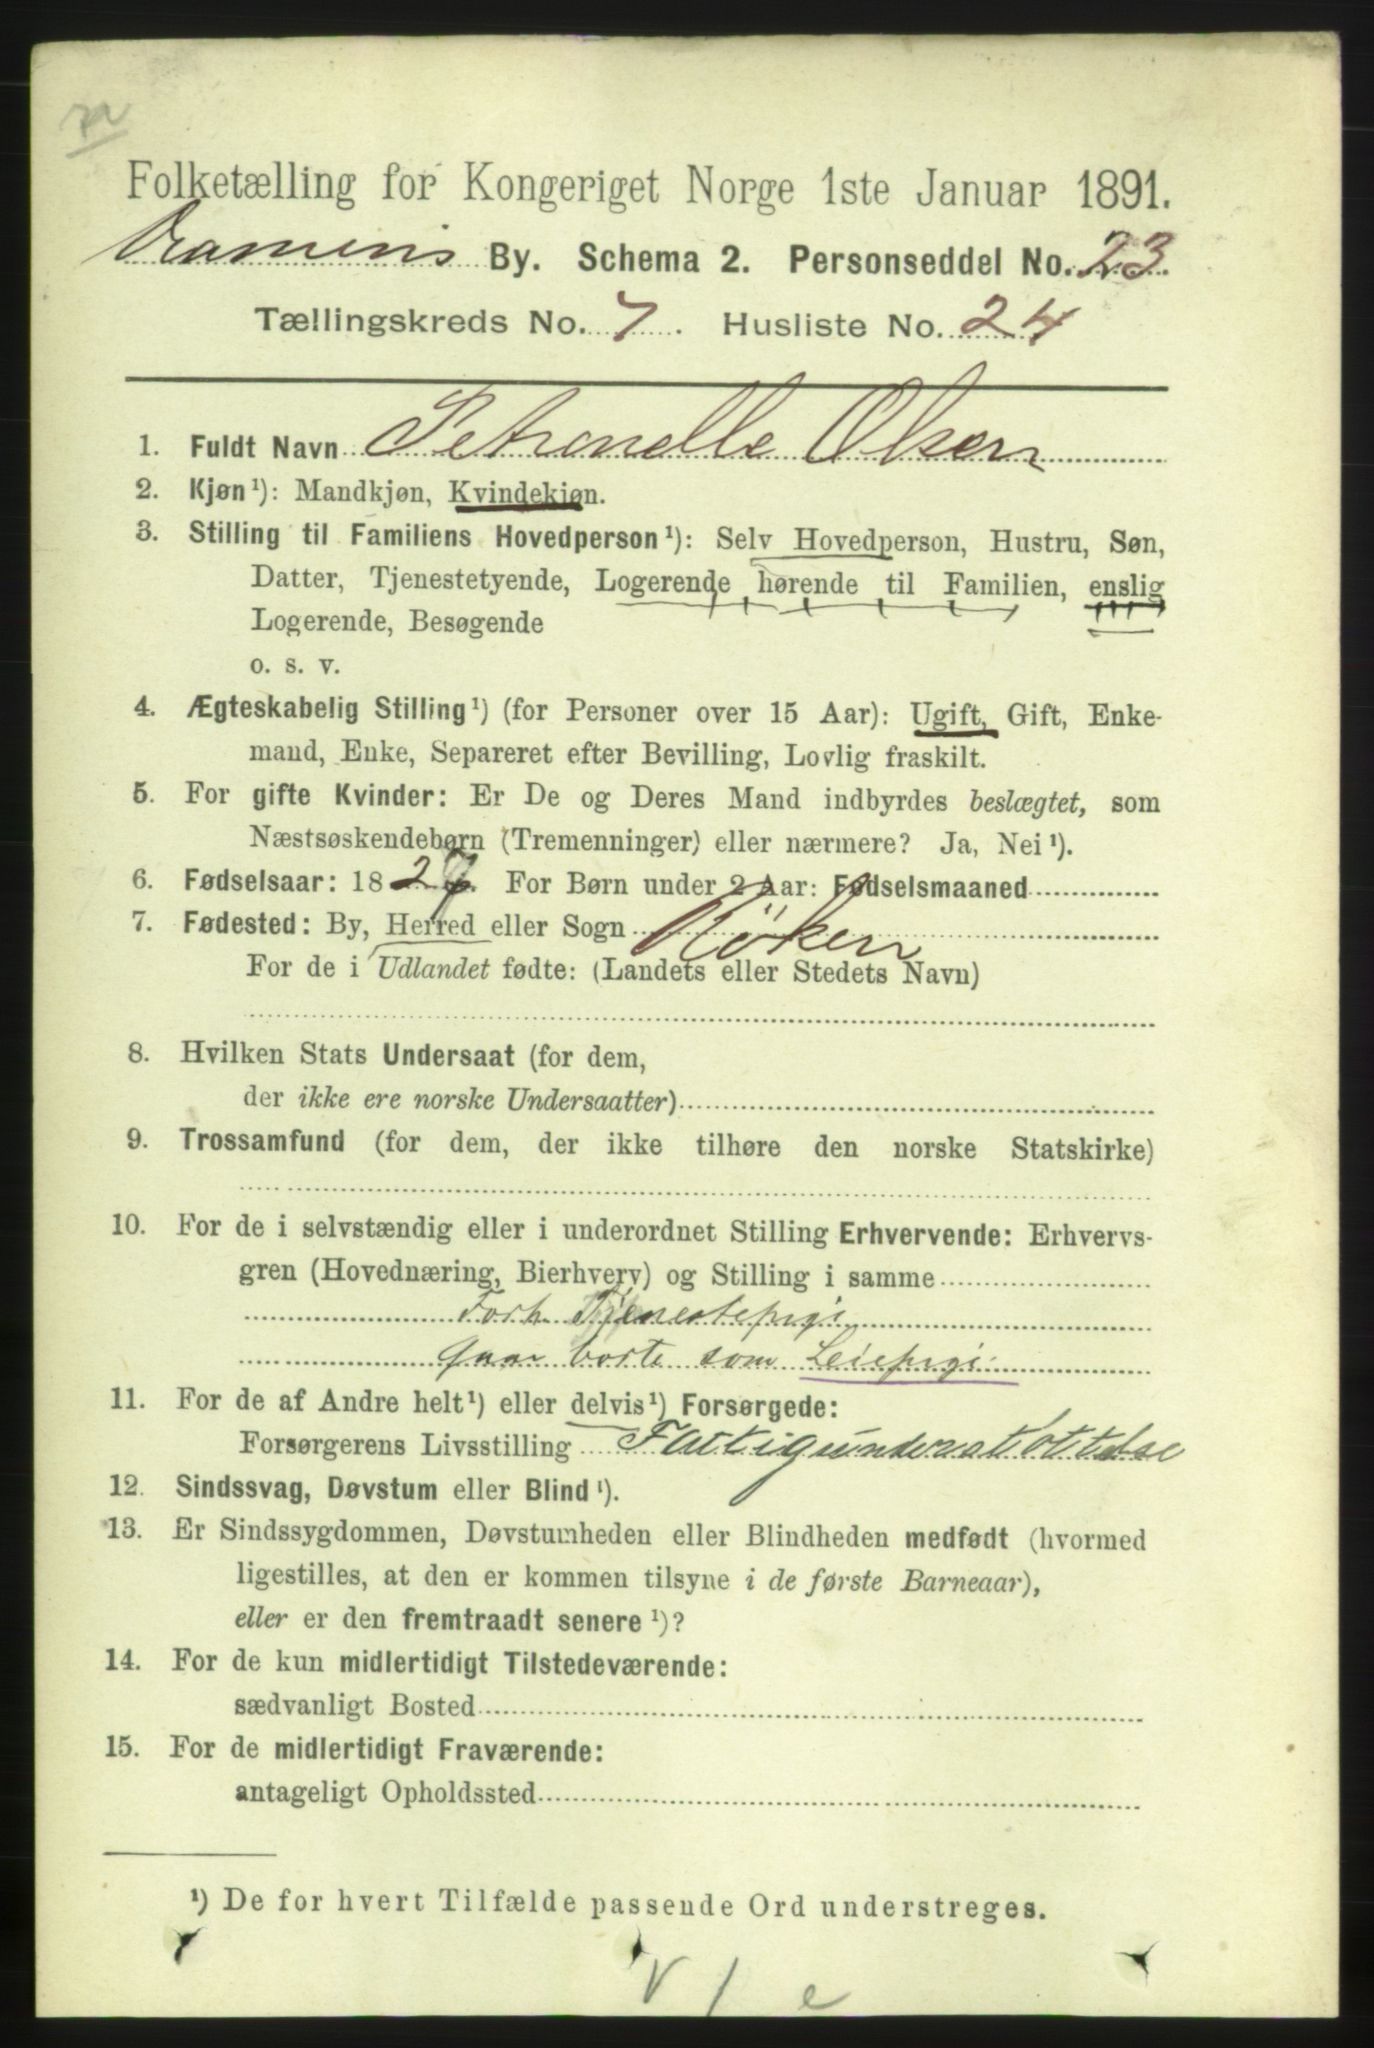 Folketælling for Kongeriget Norge 1ste Januar 1891.
Dramens By. Schema 2. Personseddel No. 23.
Tællingskreds No. 7. Husliste No. 24
1. Fuldt Navn Petronelle Olsen
2. Kjøn¹): Mandkjøn, Kvindekjøn.
3. Stilling til Familiens Hovedperson¹): Selv Hovedperson, Hustru, Søn,
Datter, Tjenestetyende, Logerende hørende til Familien, enslig
Logerende, Besøgende
o. s. v.
4. Ægteskabelig Stilling¹) (for Personer over 15 Aar): Ugift, Gift, Enke-
mand, Enke, Separeret efter Bevilling, Lovlig fraskilt.
5. For gifte Kvinder: Er De og Deres Mand indbyrdes beslægtet, som
Næstsøskendebørn (Tremenninger) eller nærmere? Ja, Nei¹).
6. Fødselsaar: 1827. For Børn under 2 Aar: Fødselsmaaned
7. Fødested: By, Herred eller Sogn Röken
For de i Udlandet fødte: (Landets eller Stedets Navn)
8. Hvilken Stats Undersaat (for dem,
der ikke ere norske Undersaatter)
9. Trossamfund (for dem, der ikke tilhøre den norske Statskirke)
10. For de i selvstændig eller i underordnet Stilling Erhvervende: Erhvervs-
gren (Hovednæring, Bierhverv) og Stilling i samme
Forh. Tjenestepige
gaar borte som Leiepige.
11. For de af Andre helt¹) eller delvis¹) Forsørgede:
Forsørgerens Livsstilling Fattigunderstøttelse
12. Sindssvag, Døvstum eller Blind¹).
13. Er Sindssygdommen, Døvstumheden eller Blindheden medfødt (hvormed
ligestilles, at den er kommen tilsyne i de første Barneaar),
eller er den fremtraadt senere¹)?
14. For de kun midlertidigt Tilstedeværende:
sædvanligt Bosted
15. For de midlertidigt Fraværende:
antageligt Opholdssted
¹) De for hvert Tilfælde passende Ord understreges.